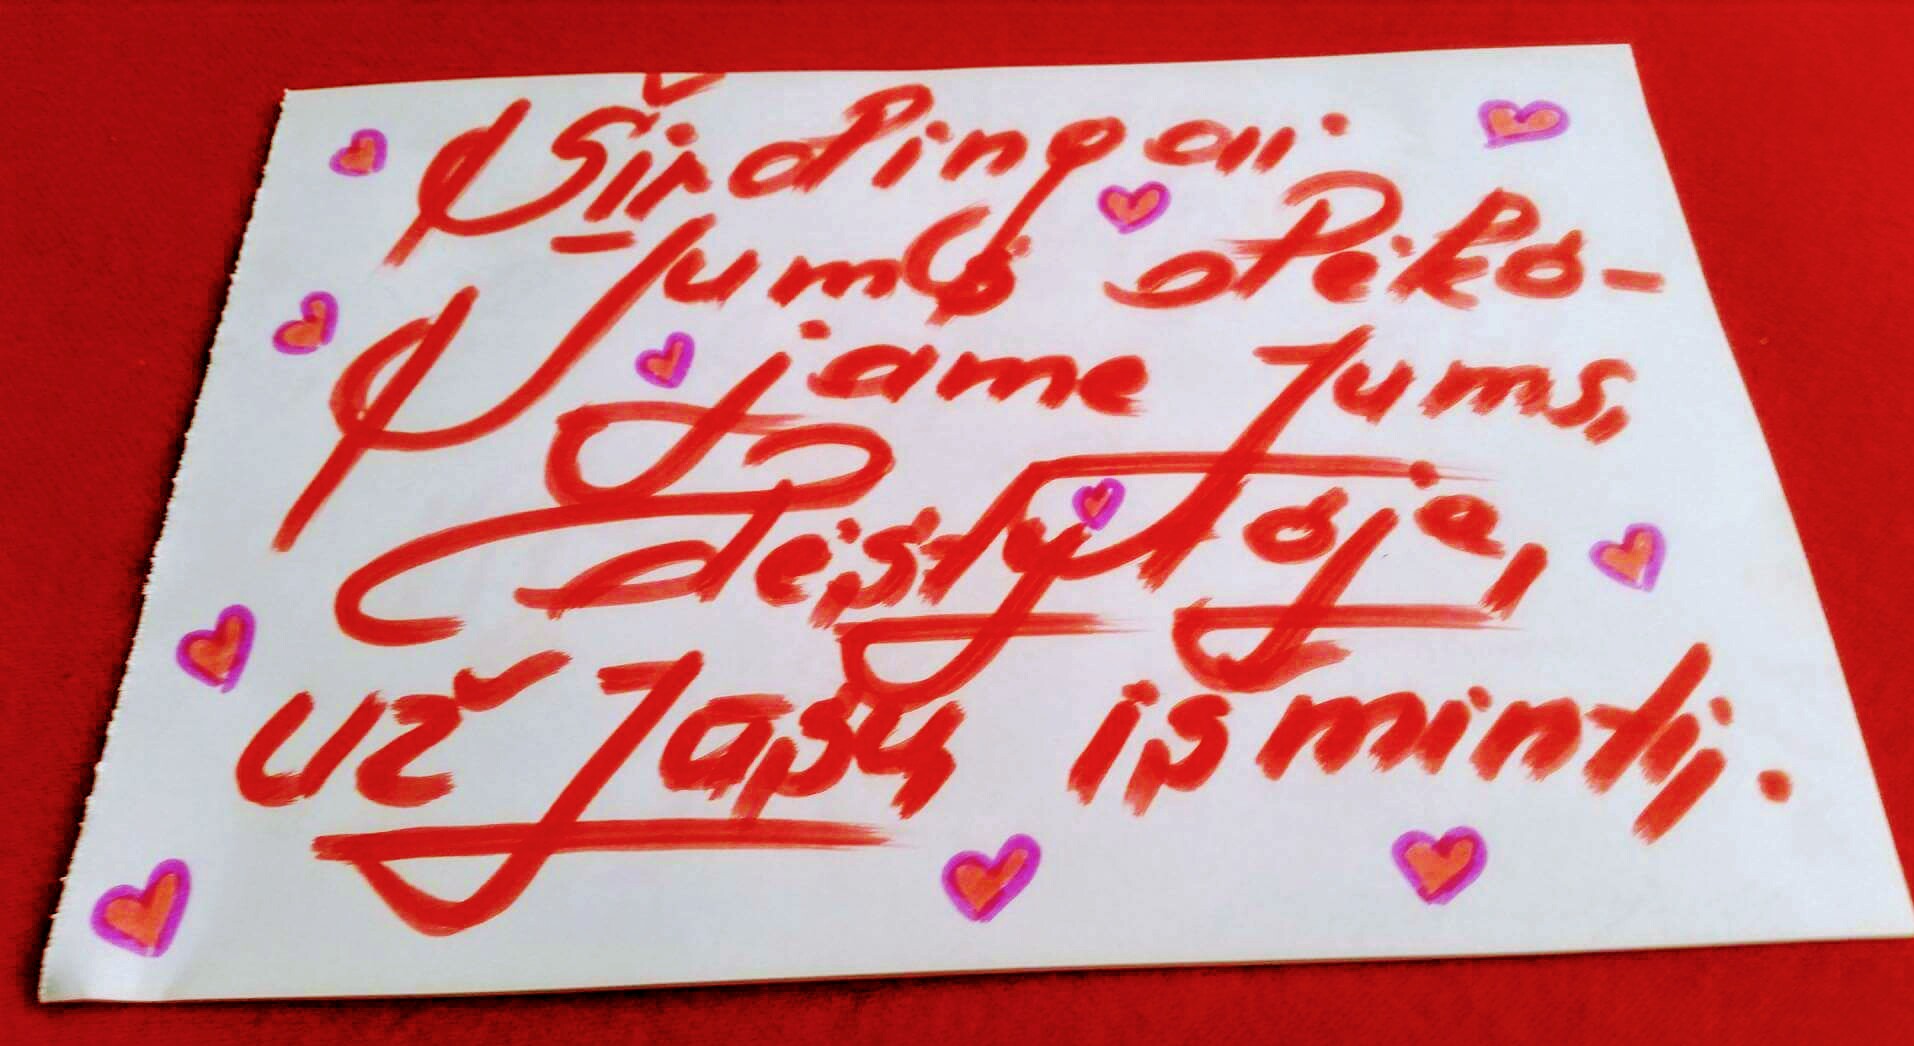 Širdingai
Jums dėko-
jame Jums,
dėstytoja,
už Jąsų ismintį.